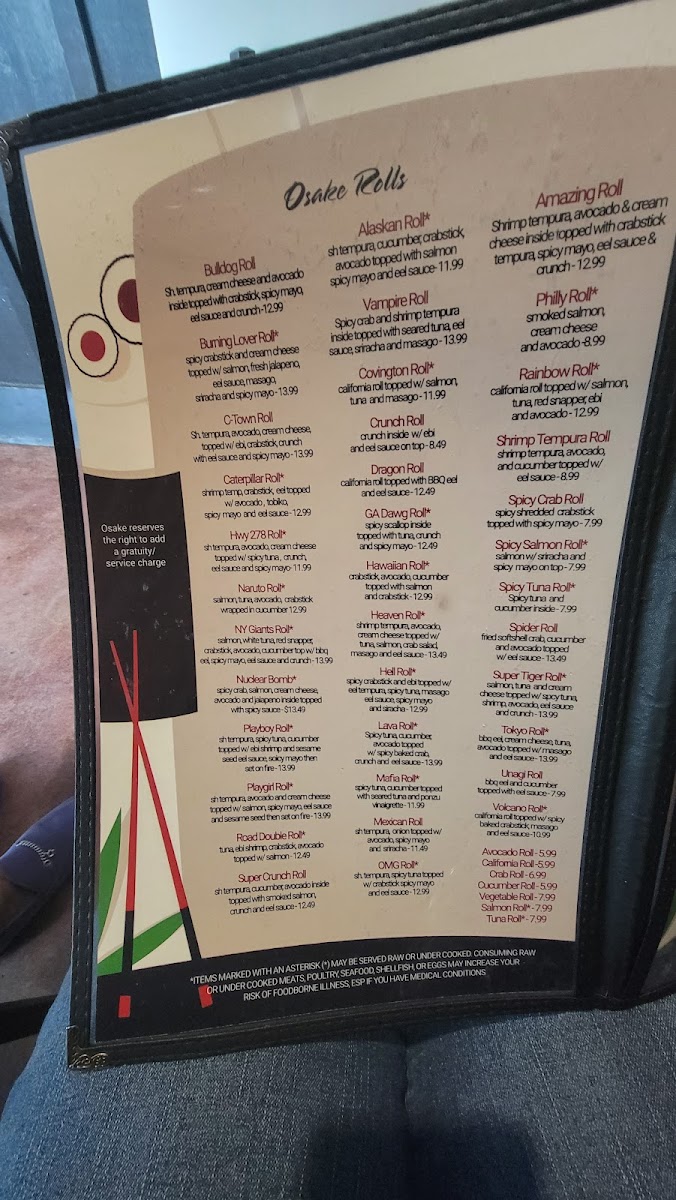 Osake Rolls
Bulldog Roll
Sh. tempura, cream cheese and avocado
inside topped with crabstick, spicy mayo,
eel sauce and crunch -12.99
Burning Lover Roll*
spicy crabstick and cream cheese
topped w/ salmon, fresh jalapeno,
eel sauce, masago,
sriracha and spicy mayo - 13.99
C-Town Roll
Sh. tempura, avocado, cream cheese,
topped w/ ebi, crabstick, crunch
with eel sauce and spicy mayo - 13.99
Caterpillar Roll*
shrimp temp, crabstick, eel topped
w/ avocado , tobiko,
spicy mayo and eel sauce - 12.99
Hwy 278 Roll*
sh tempura, avocado, cream cheese
topped w/ spicy tuna , crunch,
eel sauce and spicy mayo- 11.99
Naruto Roll*
salmon, tuna, avocado, crabstick
wrapped in cucumber 12.99
NY Giants Roll*
salmon, white tuna, red snapper,
crabstick, avocado, cucumber top w/ bbq
eel, spicy mayo, eel sauce and crunch - 13.99
Nuclear Bomb*
spicy crab, salmon, cream cheese,
avocado and jalapeno inside topped
with spicy sauce - $13.49
Playboy Roll*
sh tempura, spicy tuna, cucumber
topped w/ ebi shrimp and sesame
seed eel sauce, spicy mayo then
set on fire - 13.99
Playgirl Roll*
sh tempura, avocado and cream cheese
topped w/ salmon, spicy mayo, eel sauce
and sesame seed then set on fire - 13.99
Road Double Roll*
tuna, ebi shrimp, crabstick, avocado
topped w/ salmon - 12.49
Super Crunch Roll
sh tempura, cucumber, avocado inside
topped with smoked salmon,
crunch and eel sauce - 12.49
Alaskan Roll*
sh tempura, cucumber, crabstick,
avocado topped with salmon
spicy mayo and eel sauce- 11.99
Vampire Roll
Spicy crab and shrimp tempura
inside topped with seared tuna, eel
sauce, sriracha and masago - 13.99
Covington Roll*
california roll topped w/ salmon,
tuna and masago - 11.99
Crunch Roll
crunch inside w/ ebi
and eel sauce on top - 8.49
Dragon Roll
california roll topped with BBQ eel
and eel sauce - 12.49
GA Dawg Roll*
spicy scallop inside
topped with tuna, crunch
and spicy mayo - 12.49
Hawaiian Roll*
crabstick, avocado, cucumber
topped with salmon
and crabstick - 12.99
Heaven Roll*
shrimp tempura, avocado,
cream cheese topped w/
tuna, salmon, crab salad,
masago and eel sauce - 13.49
Hell Roll*
spicy crabstick and ebi topped w/
eel tempura, spicy tuna, masago
eel sauce, spicy mayo
and siracha - 12.99
Lava Roll*
Spicy tuna, cucumber,
avocado topped
w/ spicy baked crab,
crunch and eel sauce - 13.99
Mafia Roll*
spicy tuna, cucumber topped
with seared tuna and ponzu
vinaigrette - 11.99
Mexican Roll
sh tempura, onion topped w/
avocado, spicy mayo
and sriracha - 11.49
OMG Roll*
sh. tempura, spicy tuna topped
w/ crabstick spicy mayo
and eel sauce - 12.99
Amazing Roll
Shrimp tempura, avocado & cream
cheese inside topped with crabstick
tempura, spicy mayo, eel sauce &
crunch - 12.99
Philly Roll*
smoked salmon,
cream cheese
and avocado -8.99
Rainbow Roll*
california roll topped w/ salmon,
tuna, red snapper, ebi
and avocado - 12.99
Shrimp Tempura Roll
shrimp tempura, avocado,
and cucumber topped w/
eel sauce - 8.99
Spicy Crab Roll
spicy shredded crabstick
topped with spicy mayo - 7.99
Spicy Salmon Roll*
salmon w/ sriracha and
spicy mayo on top - 7.99
Spicy Tuna Roll*
Spicy tuna and
cucumber inside - 7.99
Spider Roll
fried softshell crab, cucumber
and avocado topped
w/ eel sauce - 13.49
Super Tiger Roll*
salmon, tuna and cream
cheese topped w/ spcy tuna,
shrimp, avocado, eel sauce
and crunch - 13.99
Tokyo Roll*
bbq eel, cream cheese, tuna,
avocado topped w/ masago
and eel sauce - 13.99
Unagi Roll
bbq eel and cucumber
topped with eel sauce - 7.99
Volcano Roll*
california roll topped w/ spicy
baked crabstick, masago
and eel sauce -10.99
Avocado Roll - 5.99
California Roll -5.99
Crab Roll - 6.99
Cucumber Roll - 5.99
Vegetable Roll - 7.99
Salmon Roll* - 7.99
Tuna Roll* - 7.99
Osake reserves
the right to add
a gratuity/
service charge
*ITEMS MARKED WITH AN ASTERISK (*) MAY BE SERVED RAW OR UNDER COOKED. CONSUMING RAW
OR UNDER COOKED MEATS, POULTRY, SEAFOOD, SHELLFISH, OR EGGS MAY INCREASE YOUR
RISK OF FOODBORNE ILLNESS, ESP IF YOU HAVE MEDICAL CONDITIONS